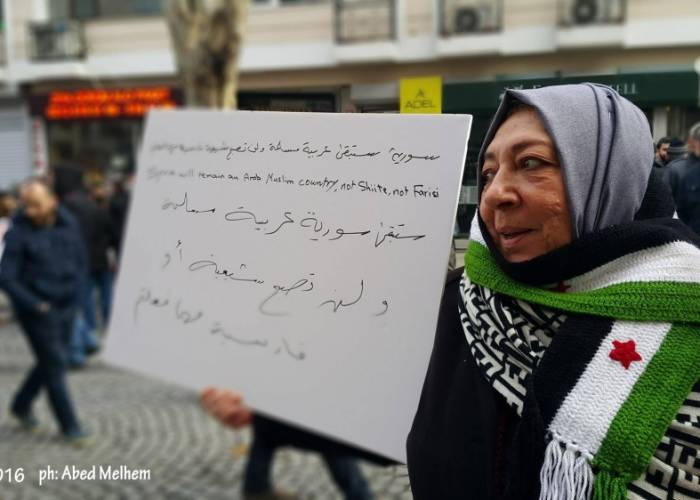 ADEL
سورية ستبقى عربية مسلمة ولن تصبح
Syria will remain an Arab, Muslim country, not Shiite, not Farisi
ستبقى سورية عربية مسلمة
ولن تصبح شيعية أو
فارسية مهما فعلتم
2016 ph: Abed Melhem